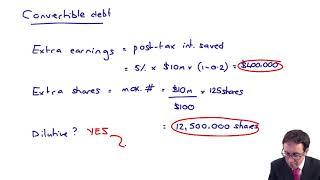 Convertible debt
Extra earnings = post-tax int. saved
= 5% x $10m x (1-0.2) = $400.000
Extra shares = max. # = $10m x 125 shares
$100
= 12,500.000 shares
Dilutive? YES